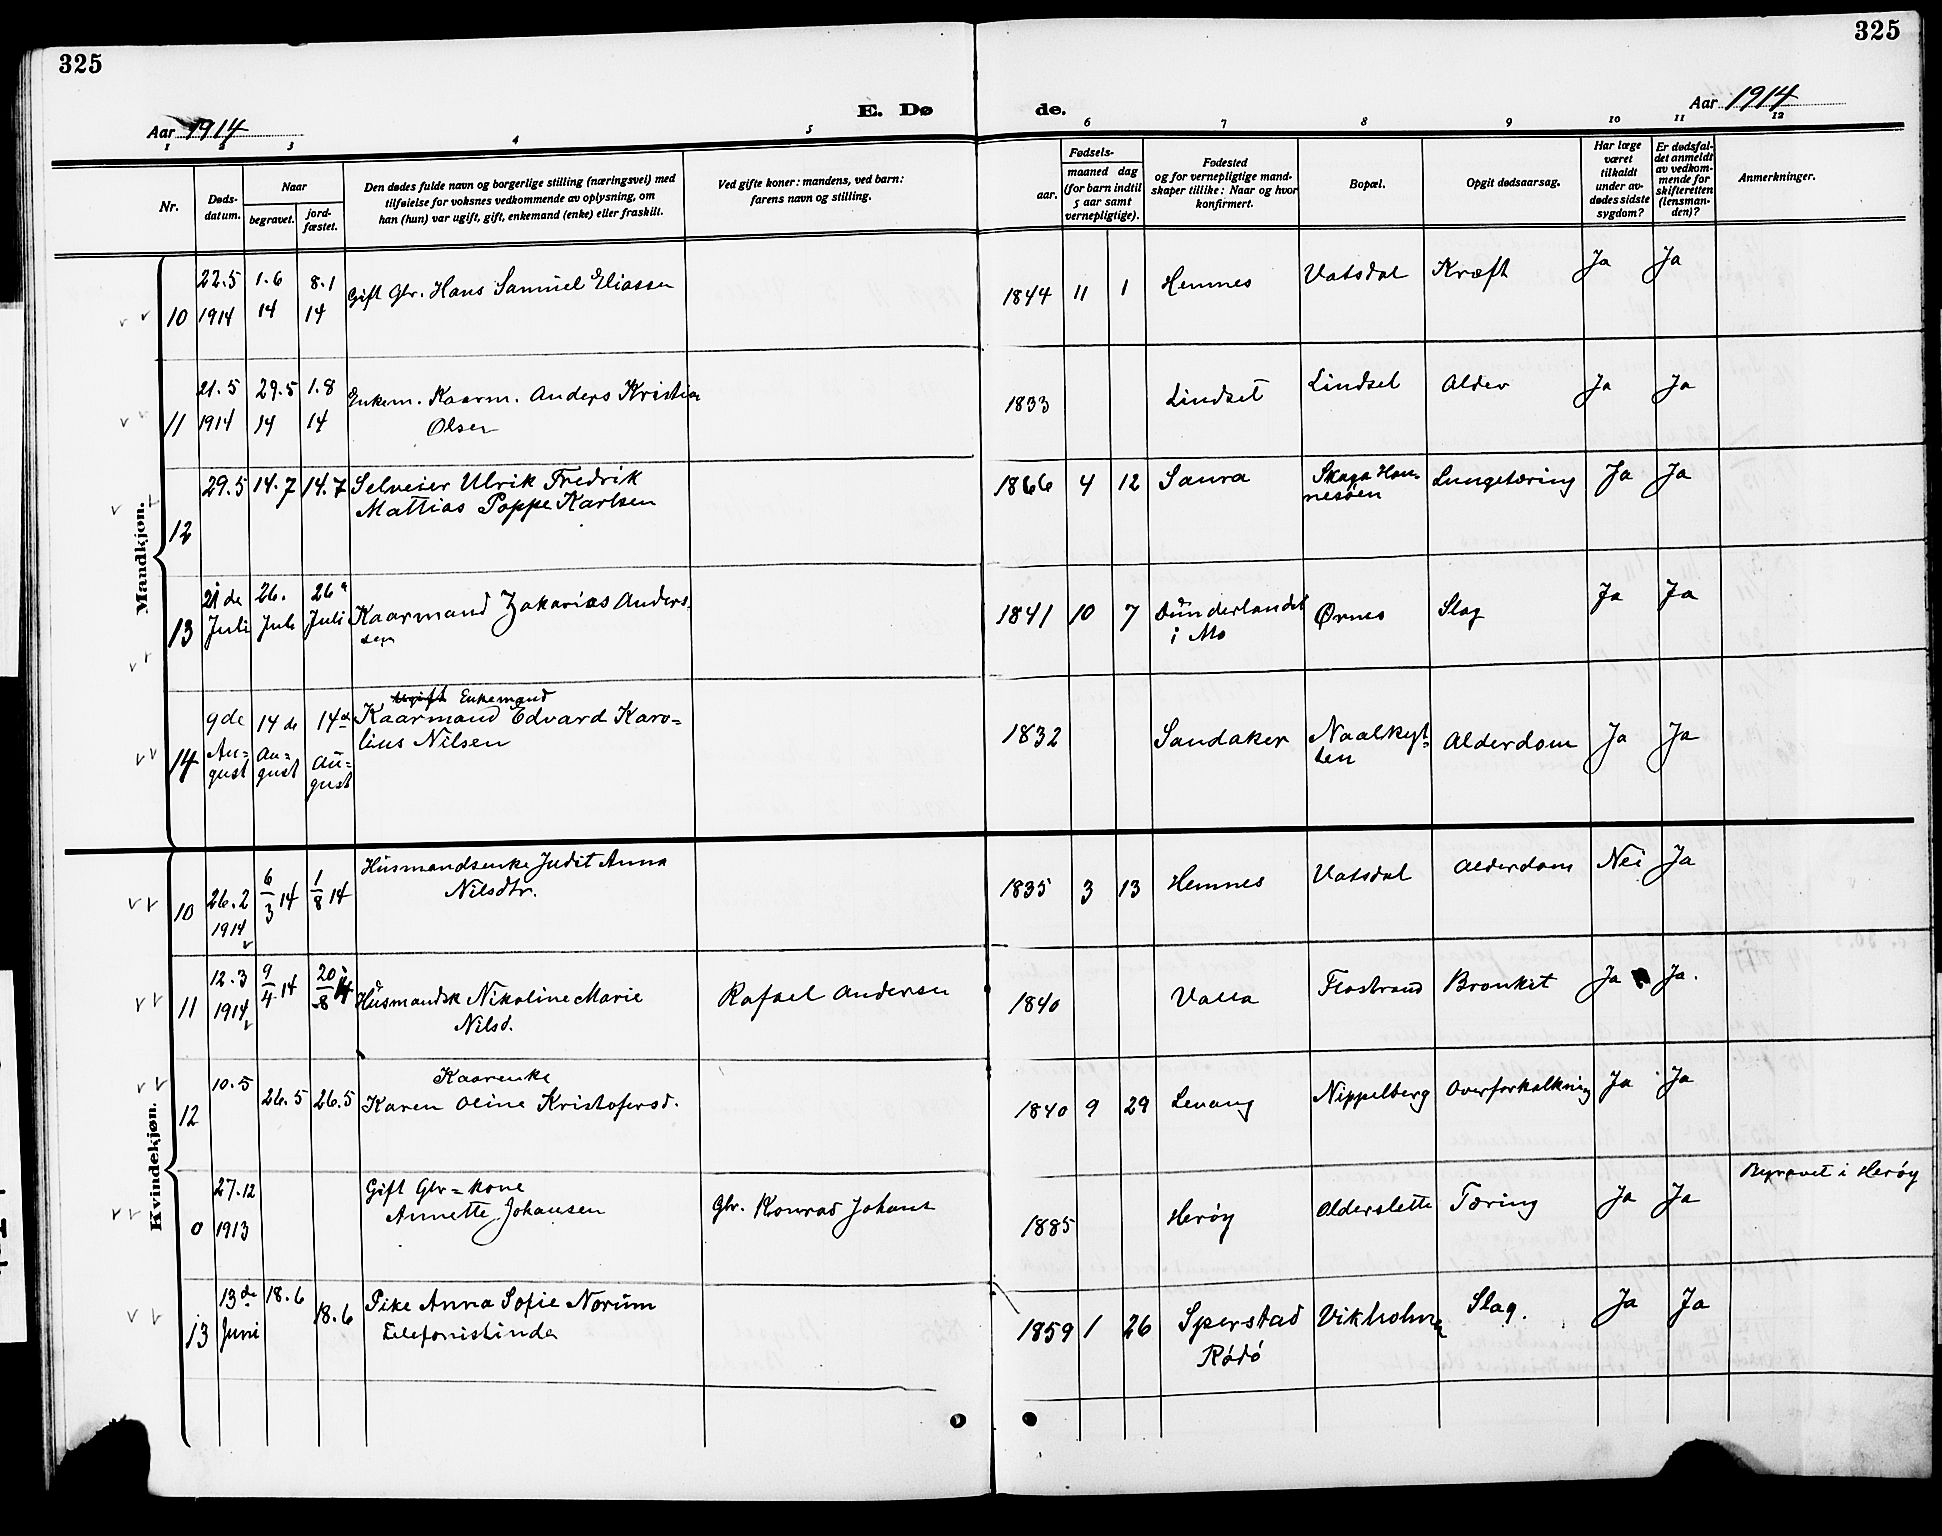 325
325
Aar 1914
E. Dø
de.
Aar 1914
1 2 3 4 5 6 7 8 9 10 11 12
Nr.
Døds-
datum.
Naar
begravet.
jord-
fæstet.
Den dødes fulde navn og borgerlige stilling (næringsvei) med
tilføielse for voksnes vedkommende av oplysning, om
han (hun) var ugift, gift, enkemand (enke) eller fraskilt.
Ved gifte koner: mandens, ved barn:
farens navn og stilling.
Fødsels-
aar.
maaned dag
(for barn indtil
5 aar samt
vernepligtige).
Fødested
og for vernepligtige mand-
skaper tillike: Naar og hvor
konfirmert.
Bopæl.
Opgit dødsaarsag.
Har læge
været
tilkaldt
under av-
dødes sidste
sygdom?
Er dødsfal-
det anmeldt
av vedkom-
mende for
skifteretten
(lensman-
den)?
Anmerkninger.
Mandkjøn.
10 22.5 1914 1.6 14 8.1 14 Gift Gbr. Hans Samuel Eliassen 1844 11 1 Hemnes Vatsdal Kræft Ja Ja
11 21.5 1914 29.5 14 1.8 14 Enkem. Kaarm. Anders Kristia
Olsen 1833 Lindset Lindset Alder Ja Ja
12 29.5 14.7 14.7 Selveier Ulrik Fredrik
Mattias Poppe Karlsen 1866 4 12 Saura Skaga Han-
nesøen Lungetæring Ja Ja
13 21de Juli 26. Juli 26. Juli Kaarmand Zakarias Anders.
sen 1841 10 7 Dunderlandet
i Mo Ørnes Slag Ja Ja
14 9de Au=
gust 14de Au=
gust 14de Au=
gust Ugift Enkemand
Kaarmand Edvard Karo=
lius Nilsen 1832 Sandaker Naalkyt=
ten Alderdom Ja Ja
Kvindekjøn.
10 26.2 1914 6/3 14 1/8 14 Husmandsenke Judit Anna
Nilsdtr. 1835 3 13 Hemnes Vatsdal Alderdom Nei Ja
11 12.3 1914 9/4 14 20/8 14 Husmandsk Nikoline Marie
Nilsd. Rafael Andersen 1840 Valla Flostrand Bronkit Ja Ja.
12 10.5 26.5 26.5 Kaarenke
Karen Oline Kristofersd. 1840 9 29 Levang Nippelberg Overforkalkning Ja Ja
0 27.12 1913 Gift Gbr=kone
Annette Johansen Gbr. Konrad Johans 1885 Herøy Alderslette Tæring Ja Ja Begravet i Herøy
13 13de Juni 18.6 18.6 Pike Anna Sofie Norum
Telefonistinde 1859 1 26 Sperstad
Rødø Vikholmen Slag. Ja Ja